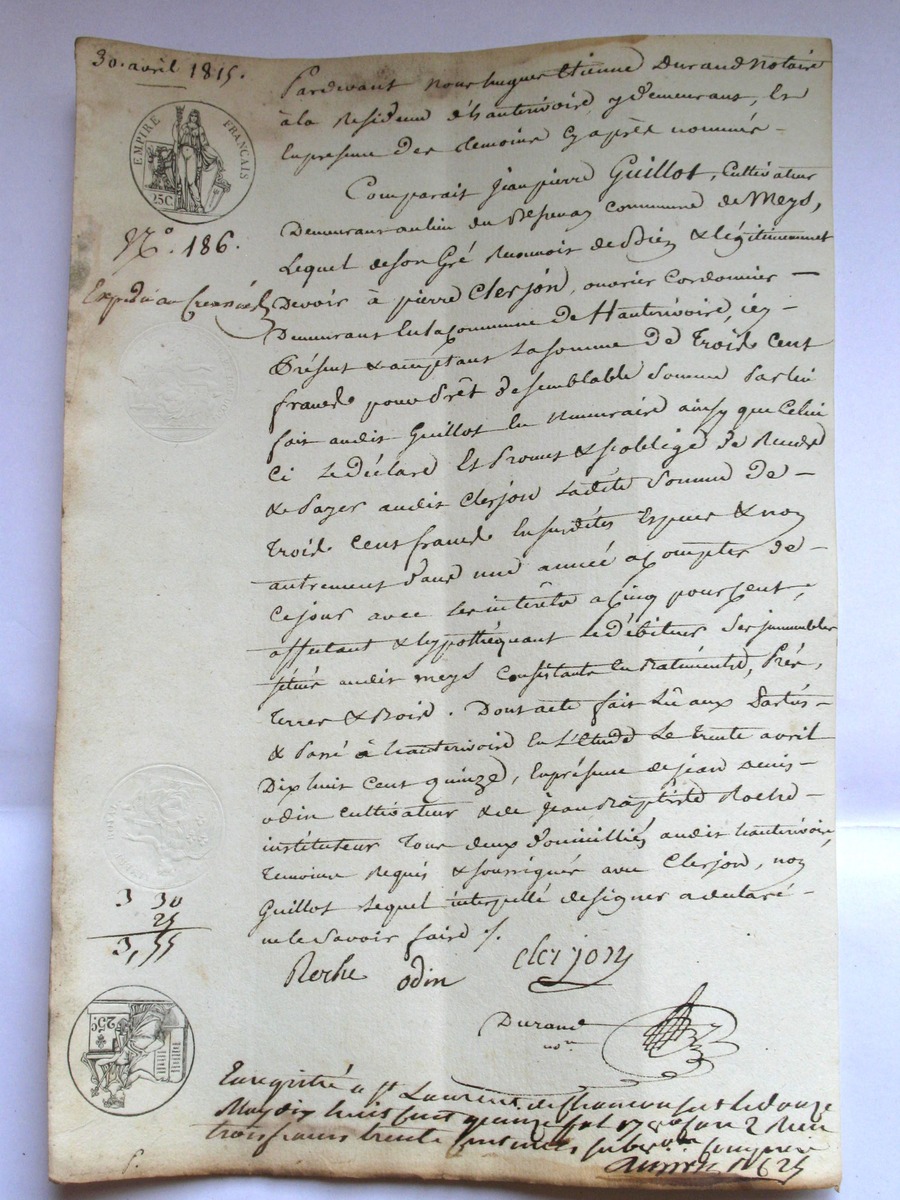 30. avril 1815.
EMPIRE FRANÇAIS
25C.
N.° 186.
Expédié au Creancier
Pardevant nous hugues Etienne Durand Notaire
à la Residence d'hauterivoire, y demeurant, Et
En presence des temoins cy après nommés –
Comparait Jean pierre Guillot, Cultivateur
Demeurant au lieu du commune de Meys,
Lequel de son Gré Reconnoit de Bien & légitimement
Devoir à pierre Clerjon, ouvrier Cordonnier –
Demeurant En la commune de Hauterivoire, icy –
Présent & acceptant La somme de Trois Cent
francs pour Prêt de semblable Somme Par lui
fait audit Guillot En Numeraire ainsy que Celui
Ci Le déclare Et Promet & s'oblige de Rendre
& Payer audit Clerjon Ladite Somme de –
Trois Cent francs En susdites Especes & non
autrement dans une année a Compter de –
Ce jour avec Les intérêts a Cinq pour Cent,
affectant & hypothéquant Le débiteur Ses immeubles
situés audit meys Consistants En Batiments, Prés,
Terres & Bois. Dont acte fait Lû aux Parties –
& Passé à hauterivoire En L'étude Le trente avril
Dix huit Cent quinze, En présence de jean denis –
odin Cultivateur & de Jean Baptiste Roche –
instituteur Tous deux domicilliés audit hauterivoire,
Temoins Requis & soussignés avec Clerjon, non
Guillot Lequel interpellé de signer a declaré –
ne le Savoir faire ./.
3 30
25
3,55
Roche odin clerjon
Durand
no.re
25C.
Enregistré a St Laurent de Chamousset le douze
May dix huit cent quinze fol 178 2 Reçu
trois francs trente centimes subvon Comprise